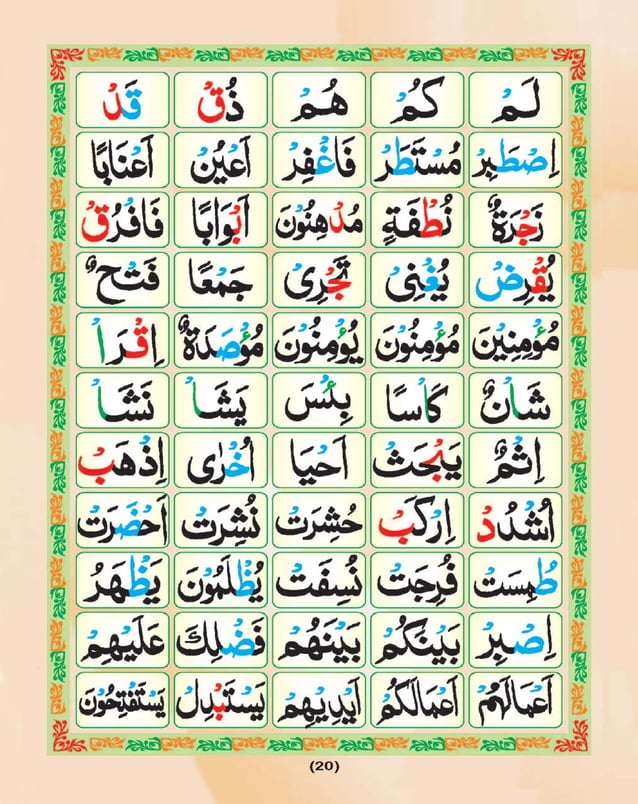 لَمْ كُمْ هُمْ ذُقْ قَدْ
اِصْطَبِرْ مُسْتَطَرْ فَاغْفِرْ اَعْيُنٌ اَعْنَابًا
زَجْرَةٌ نُطْفَةٍ مُدْهِنُوْنَ اَبْوَابًا فَافْرُقْ
يُقْرِضْ يُغْنِىْ تَجْرِىْ جَمْعًا فَتْحٌ
مُؤْمِنِيْنَ مُؤْمِنُوْنَ يُؤْمِنُوْنَ مُؤْصَدَةٌ اِقْرَاْ
شَاْنٌ كَاْسًا بِئْسَ يَشَاْ نَشَاْ
اِثْمٌ يَبْحَثُ اَحْيَا اُخْرٰى اِذْهَبْ
اُشْدُدْ اِرْكَبْ حُشِرَتْ نُشِرَتْ اَحْضَرَتْ
طُمِسَتْ فُرِجَتْ نُسِفَتْ يُظْلَمُوْنَ يَظْهَرُ
اِصْبِرْ بَيْنَكُمْ بَيْنَهُمْ فَضْلِكَ عَلَيْهِمْ
اَعْمَالَهُمْ اَعْمَالَكُمْ اَيْدِيْهِمْ يَسْتَبْدِلْ يَسْتَفْتِحُوْنَ
(20)